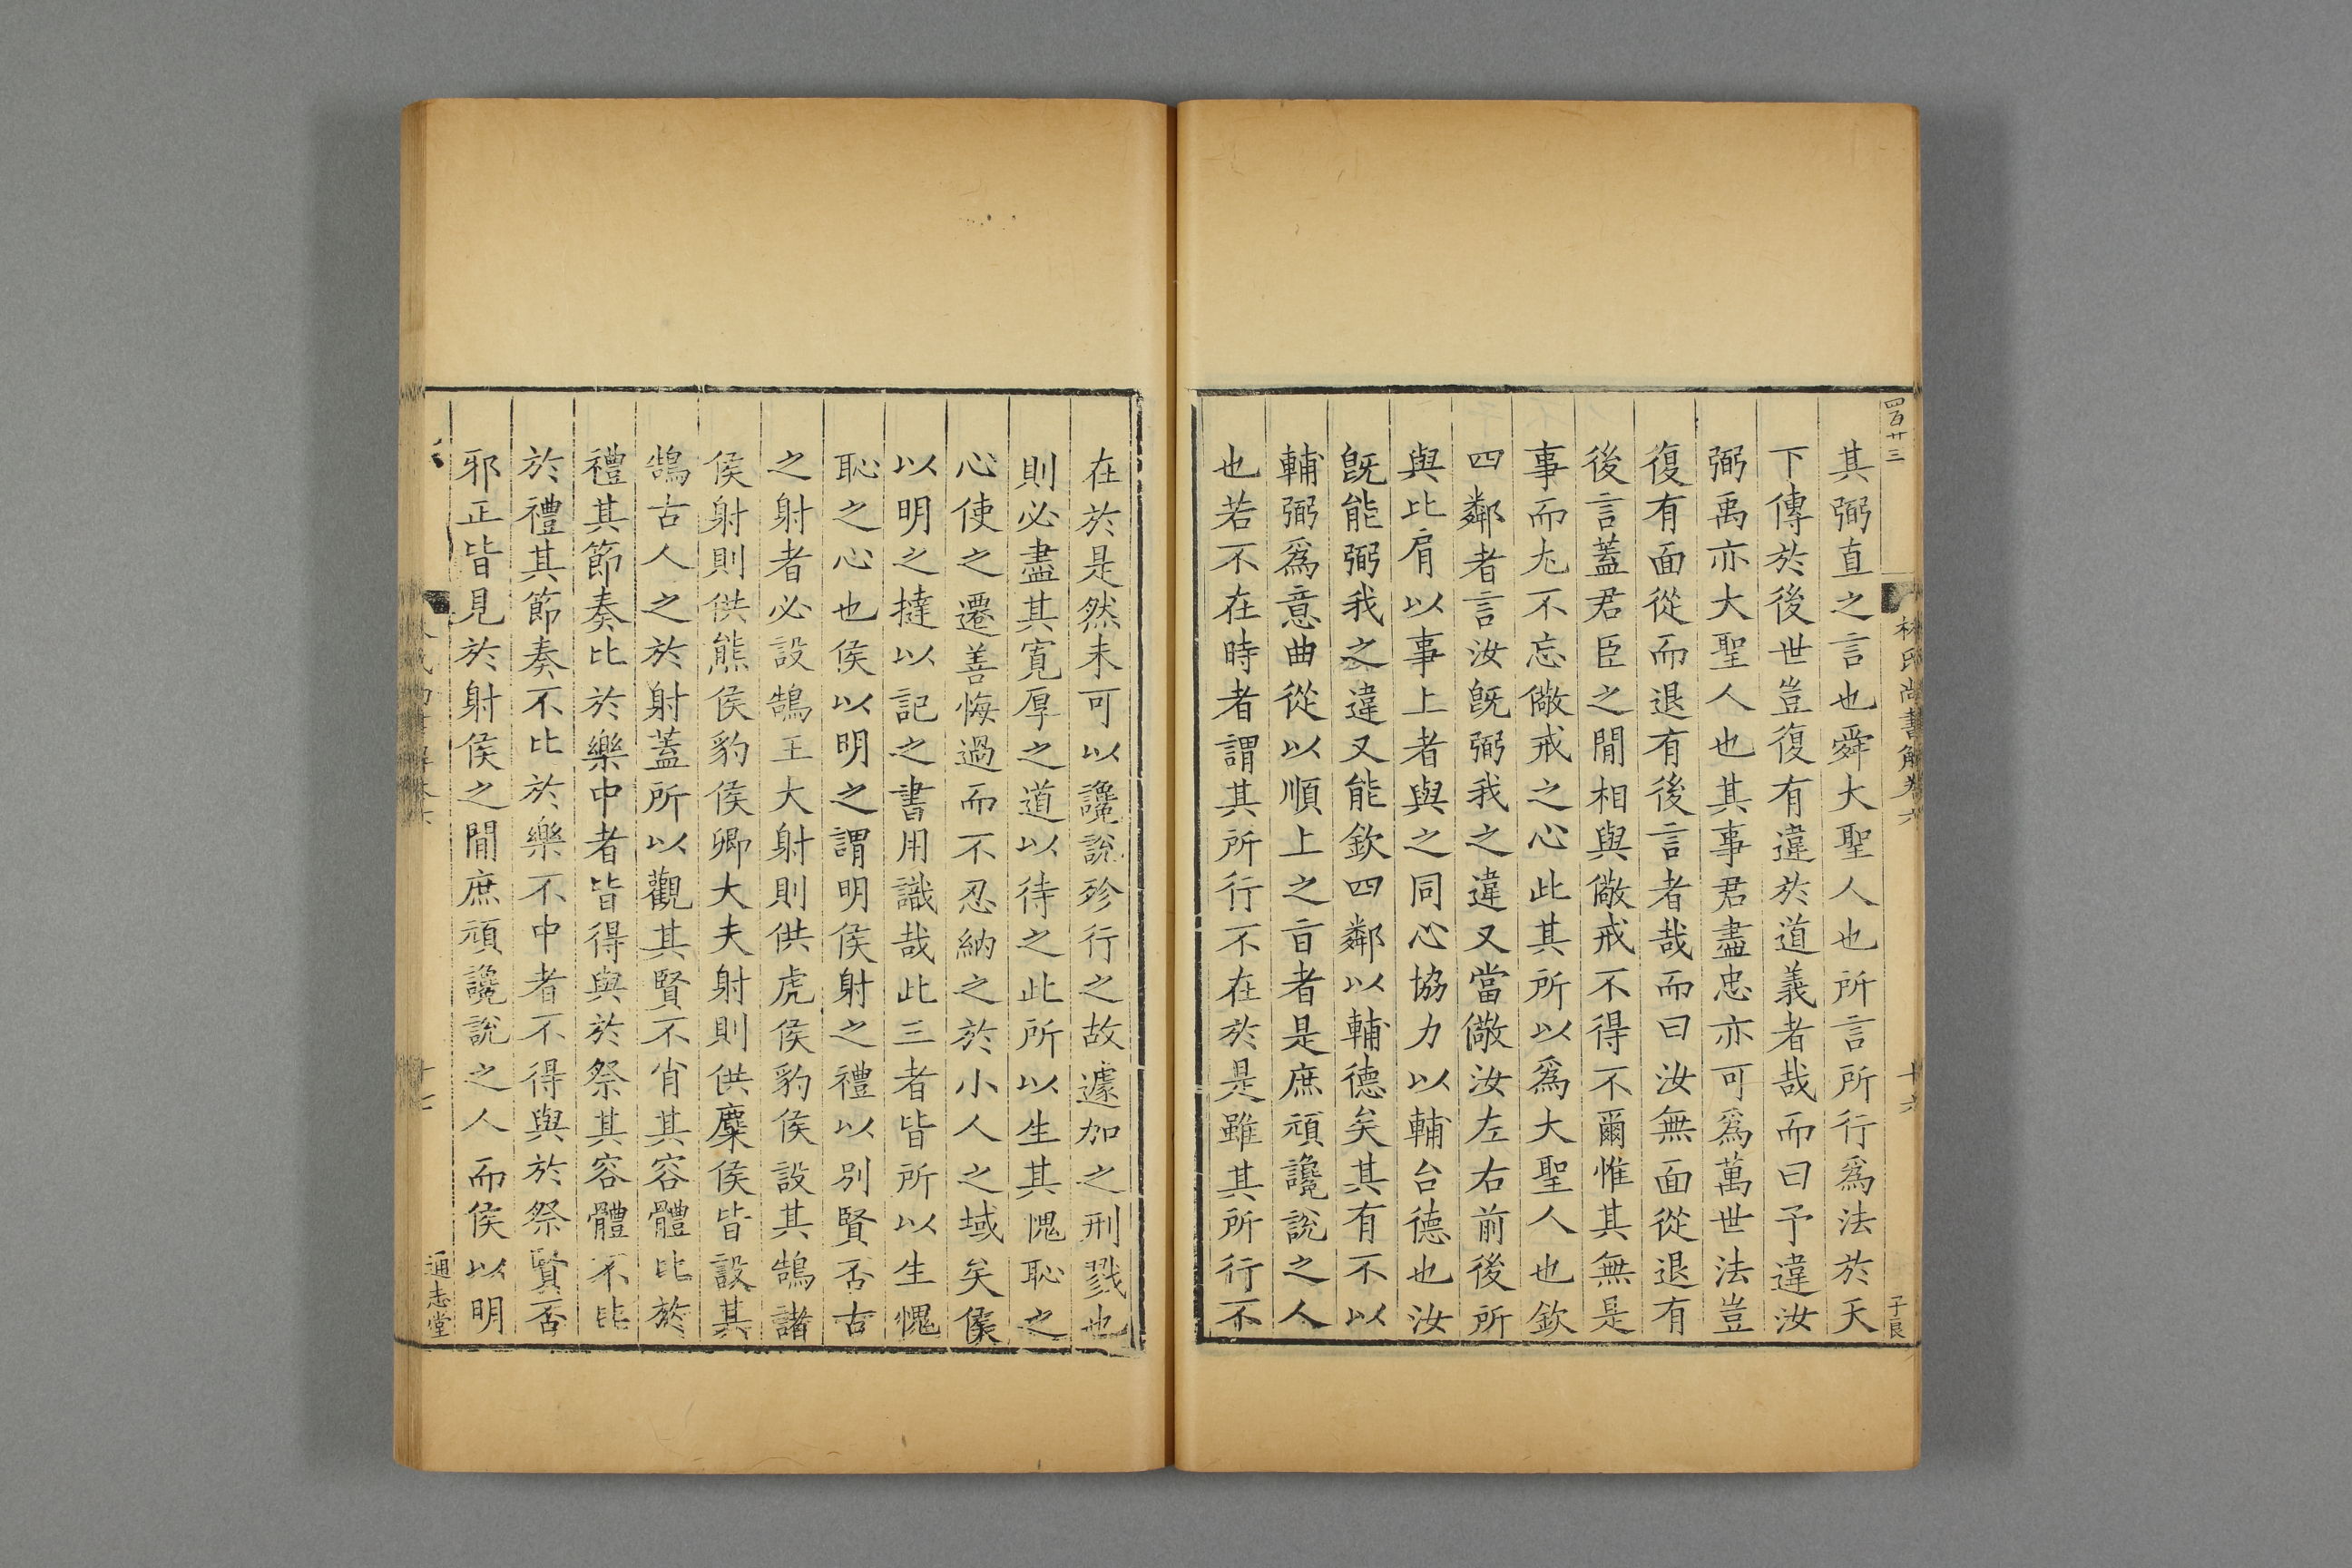 四百廿三
林氏尚書解卷六
十六
子良
其弼直之言也舜大聖人也所言所行爲法於天
下傳於後世豈復有違於道義者哉而曰予違汝
弼禹亦大聖人也其事君盡忠亦可爲萬世法豈
復有面從而退有後言者哉而曰汝無面從退有
後言蓋君臣之閒相與儆戒不得不爾惟其無是
事而尤不忘儆戒之心此其所以爲大聖人也欽
四鄰者言汝旣弼我之違又當儆汝左右前後所
與比肩以事上者與之同心協力以輔台德也汝
旣能弼我之違又能欽四鄰以輔德矣其有不以
輔弼爲意曲從以順上之旨者是庶頑讒說之人
也若不在時者謂其所行不在於是雖其所行不
在於是然未可以讒說殄行之故遽加之刑戮也
則必盡其寬厚之道以待之此所以生其愧恥之
心使之遷善悔過而不忍納之於小人之域矣侯
以明之撻以記之書用識哉此三者皆所以生愧
恥之心也侯以明之謂明侯射之禮以別賢否古
之射者必設鵠王大射則供虎侯豹侯設其鵠諸
侯射則供熊侯豹侯卿大夫射則供麋侯皆設其
鵠古人之於射蓋所以觀其賢不肖其容體比於
禮其節奏比於樂中者皆得與於祭其容體不比
於禮其節奏不比於樂不中者不得與於祭賢否
邪正皆見於射侯之閒庶頑讒說之人而侯以明
通志堂